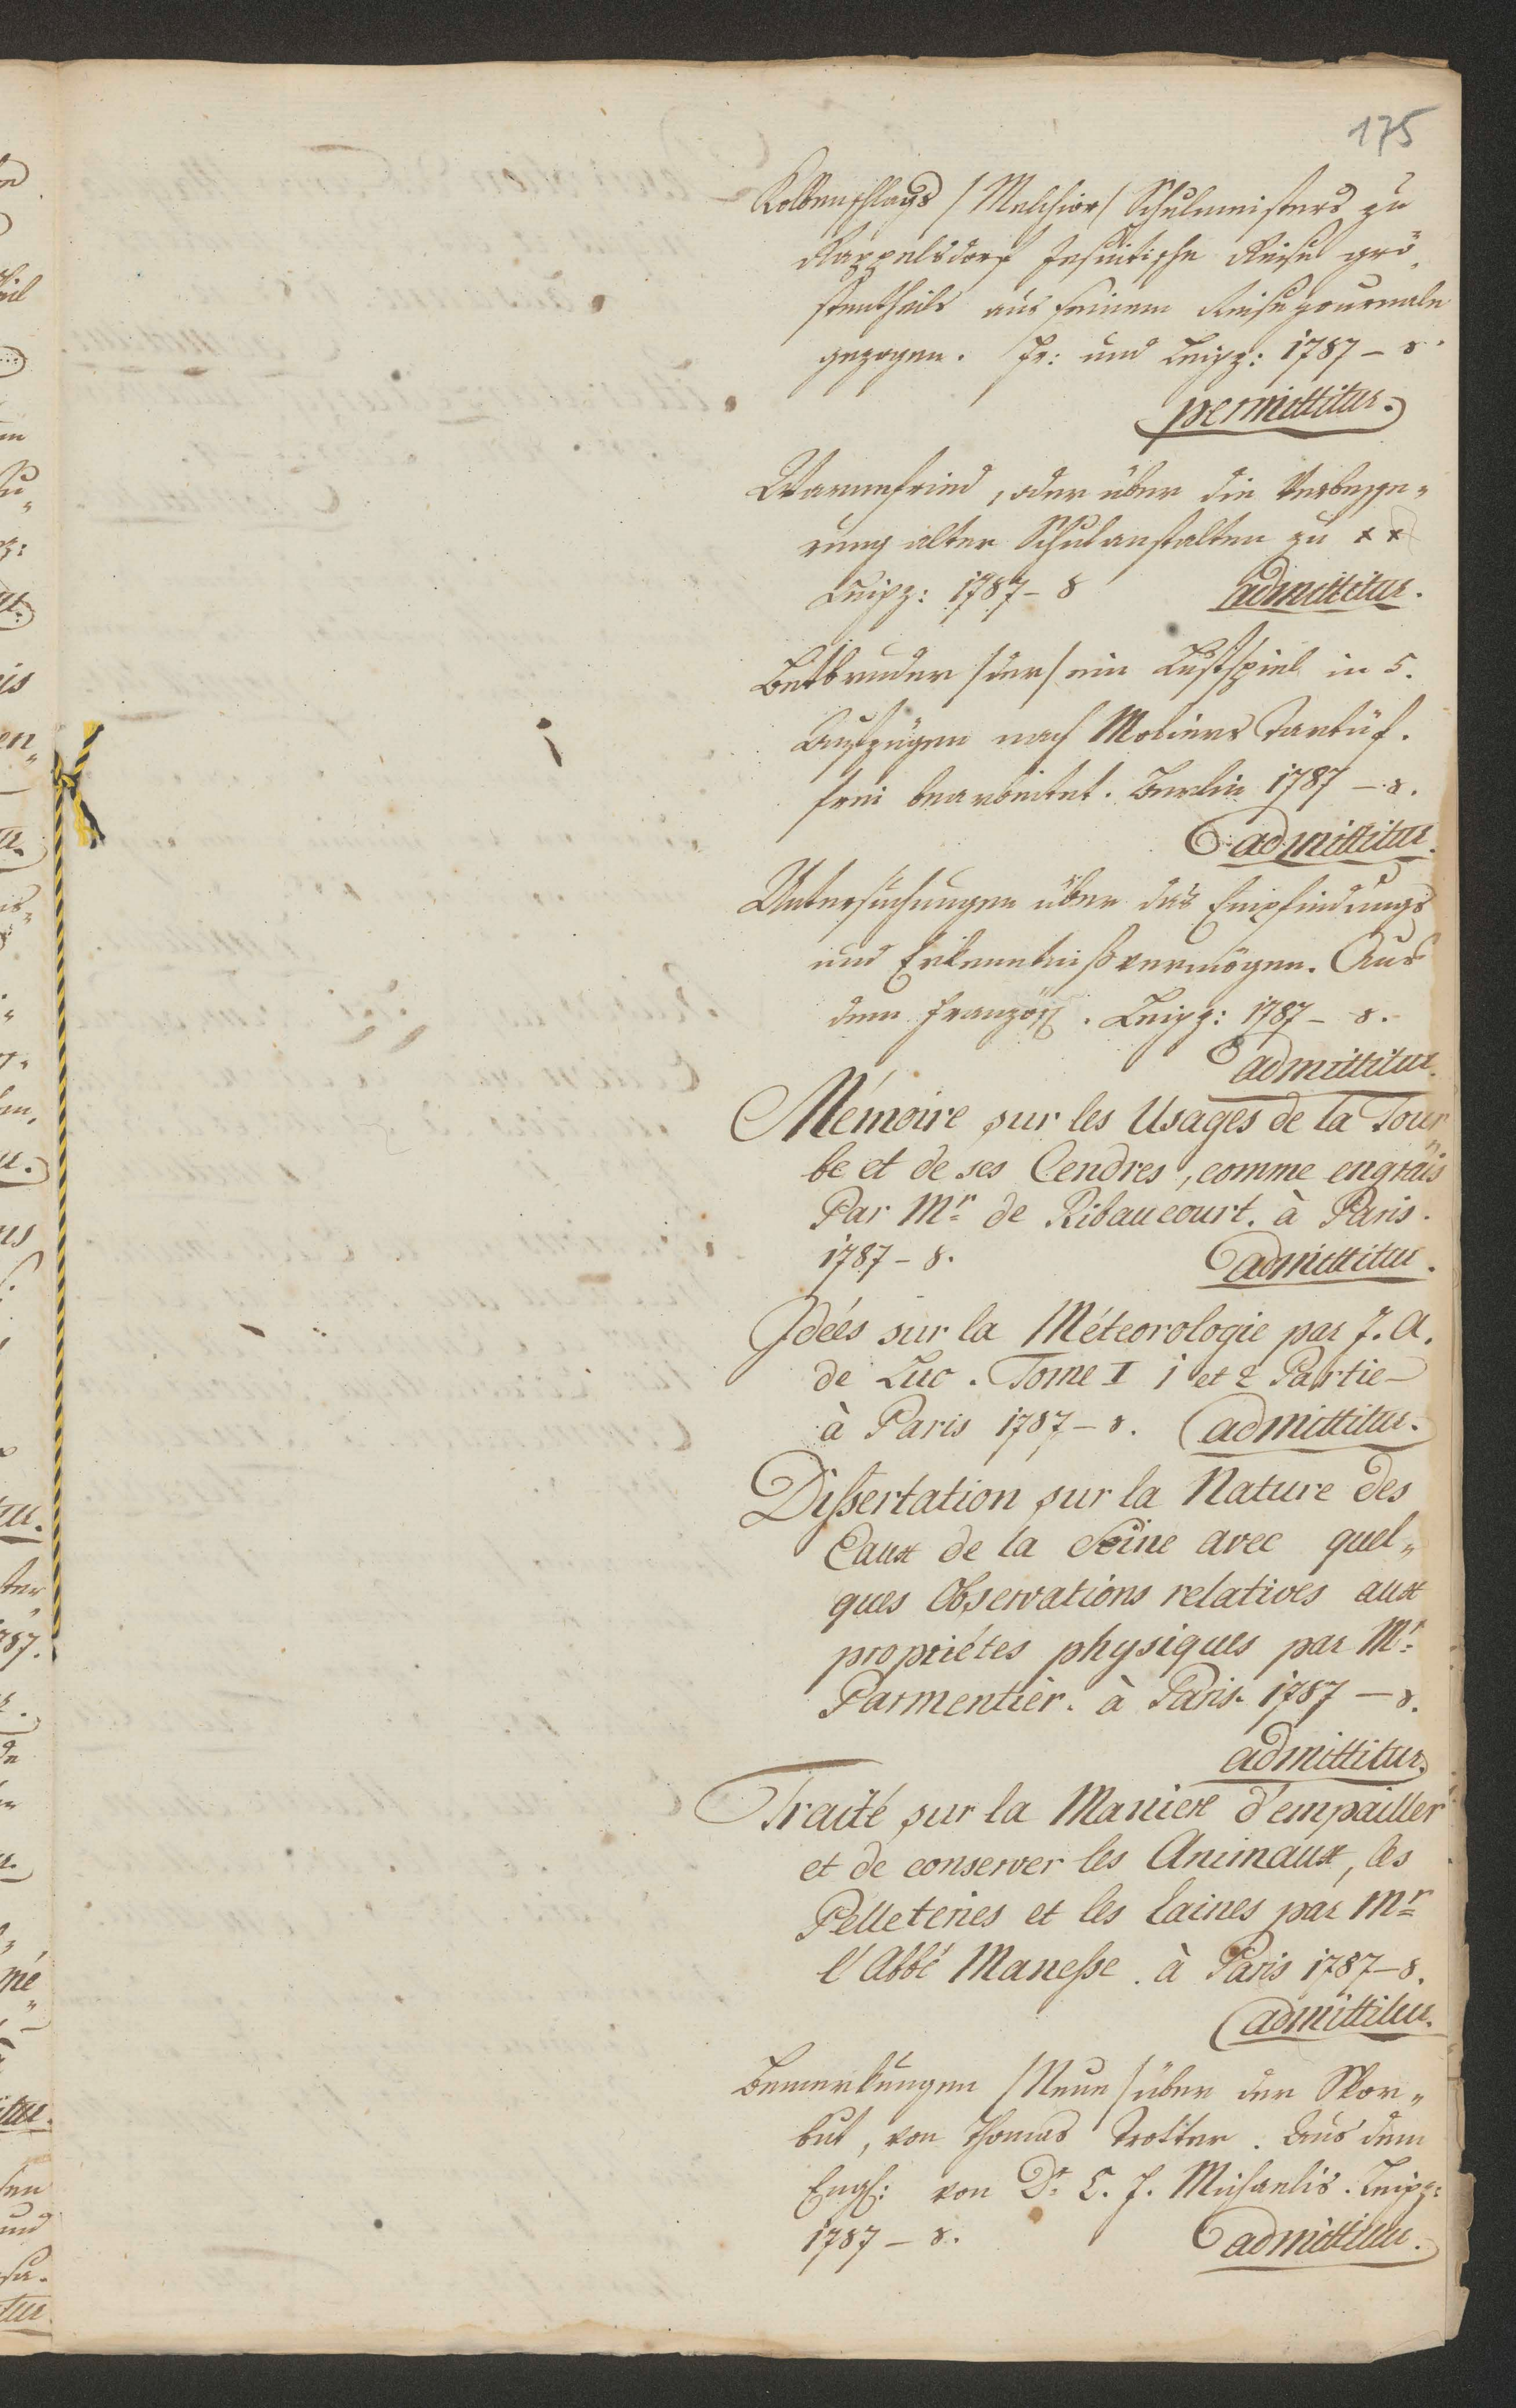 175
Kolbenschlags /Melchior/ Schulmeisters zu
Rappelsdorf Jesuitische Reise grö¬
stentheils aus seinem Reisejournale
gezogen. Fr: und Leipz: 1787 – 8.
permittitur.
Warmfried, oder über die Verbesse„
rung alter Schulanstalten zu xx
Leipz: 1787 – 8 admittitur.
Betbruder /der/ ein Lustspiel in 5.
Aufzügen nach Moliers Tartüf.
frei bearbeitet. Berlin 1787 – 8.
admittitur.
Untersuchungen über das Empfindungs
und Erkenntnißvermögen. Aus
dem Französ. Leipz: 1787 – 8.
admittitur.
Mémoire sur les Usages de la Tour„
be et de ses Cendres, comme engrais
Par Mr de Ribaucourt. à Paris.
1787 – 8. admittitur.
Idées sur la Méteorologie par J. A.
de Luc. Tome I 1 et 2 Partie
à Paris 1787 – 8. admittitur.
Dissertation sur la Nature des
Eaux de la Seine avec quel„
ques Observations relatives aux
propriétes physiques par Mr
Parmentier. à Paris. 1787 – 8.
admittitur.
Traité sur la Maniere d'empailler
et de conserver les Animaux, les
Pelleteries et les laines par Mr
l'Abbé Manesse. à Paris 1787 – 8.
admittitur.
Bemerkungen /Neue/ über den Skor„
but, von Thomas Trotter. Aus dem
Engl: von Dr C. F. Michaelis. Leipz:
1787 – 8. admittitur.